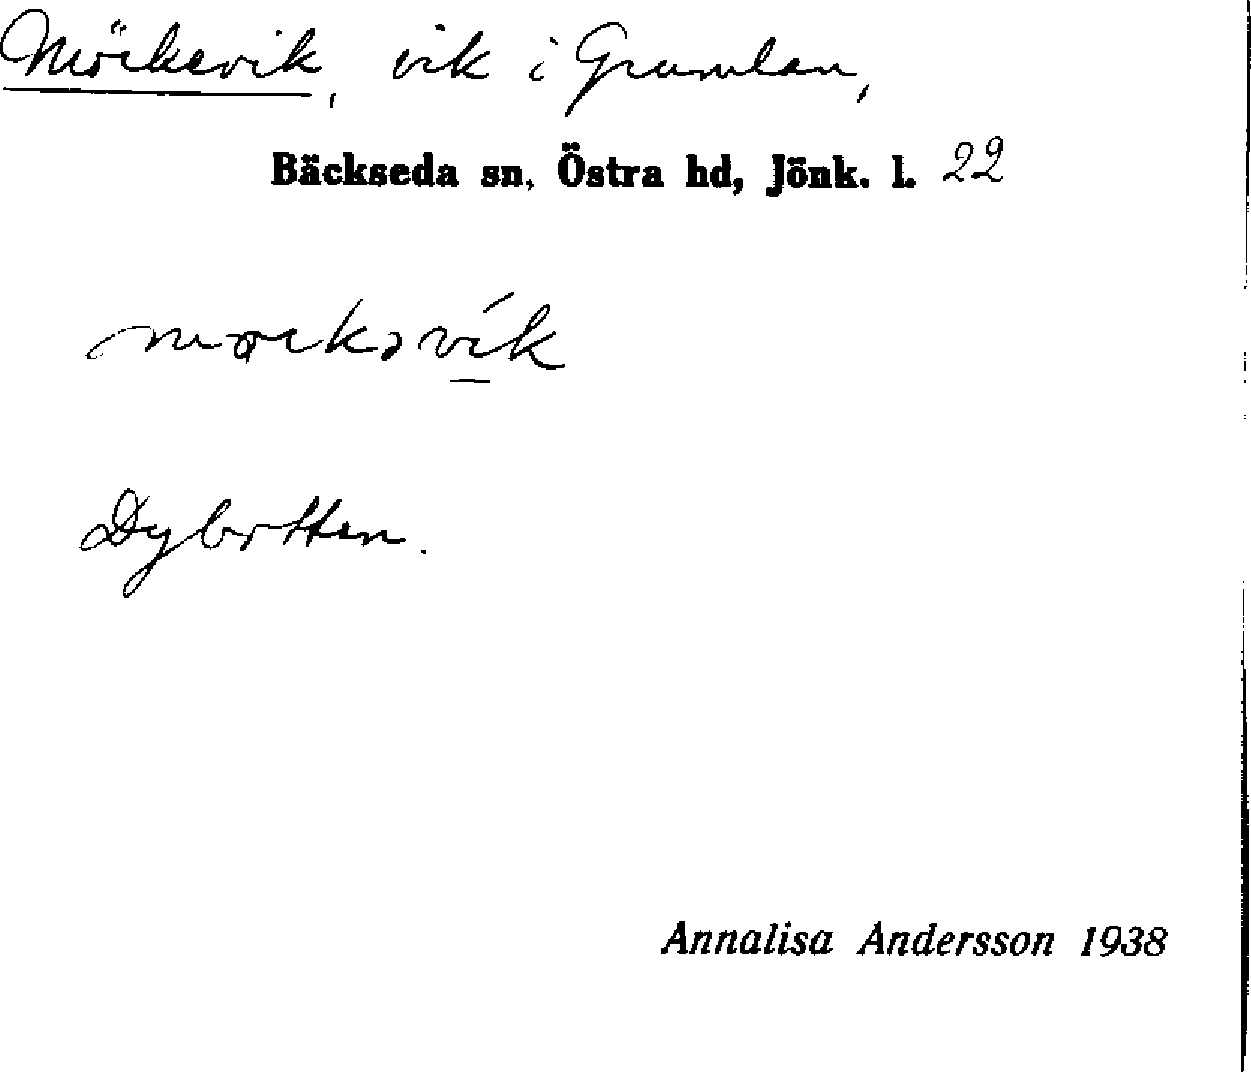 Mörkevik, vik i Grumlan,
Bäckseda sn, Östra hd, Jönk. l. 22
Dybotten.
Annalisa Andersson 1938